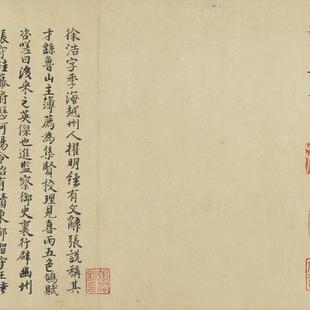 徐浩字季海越州人擢明經有文辭張說稱其
才繇魯山主簿薦為集賢校理見喜雨五色鴿賦
咨嗟曰後來之英傑也進監察御史裏行辟幽州
張守珪幕府歷河陽令治有績東都留守王倕